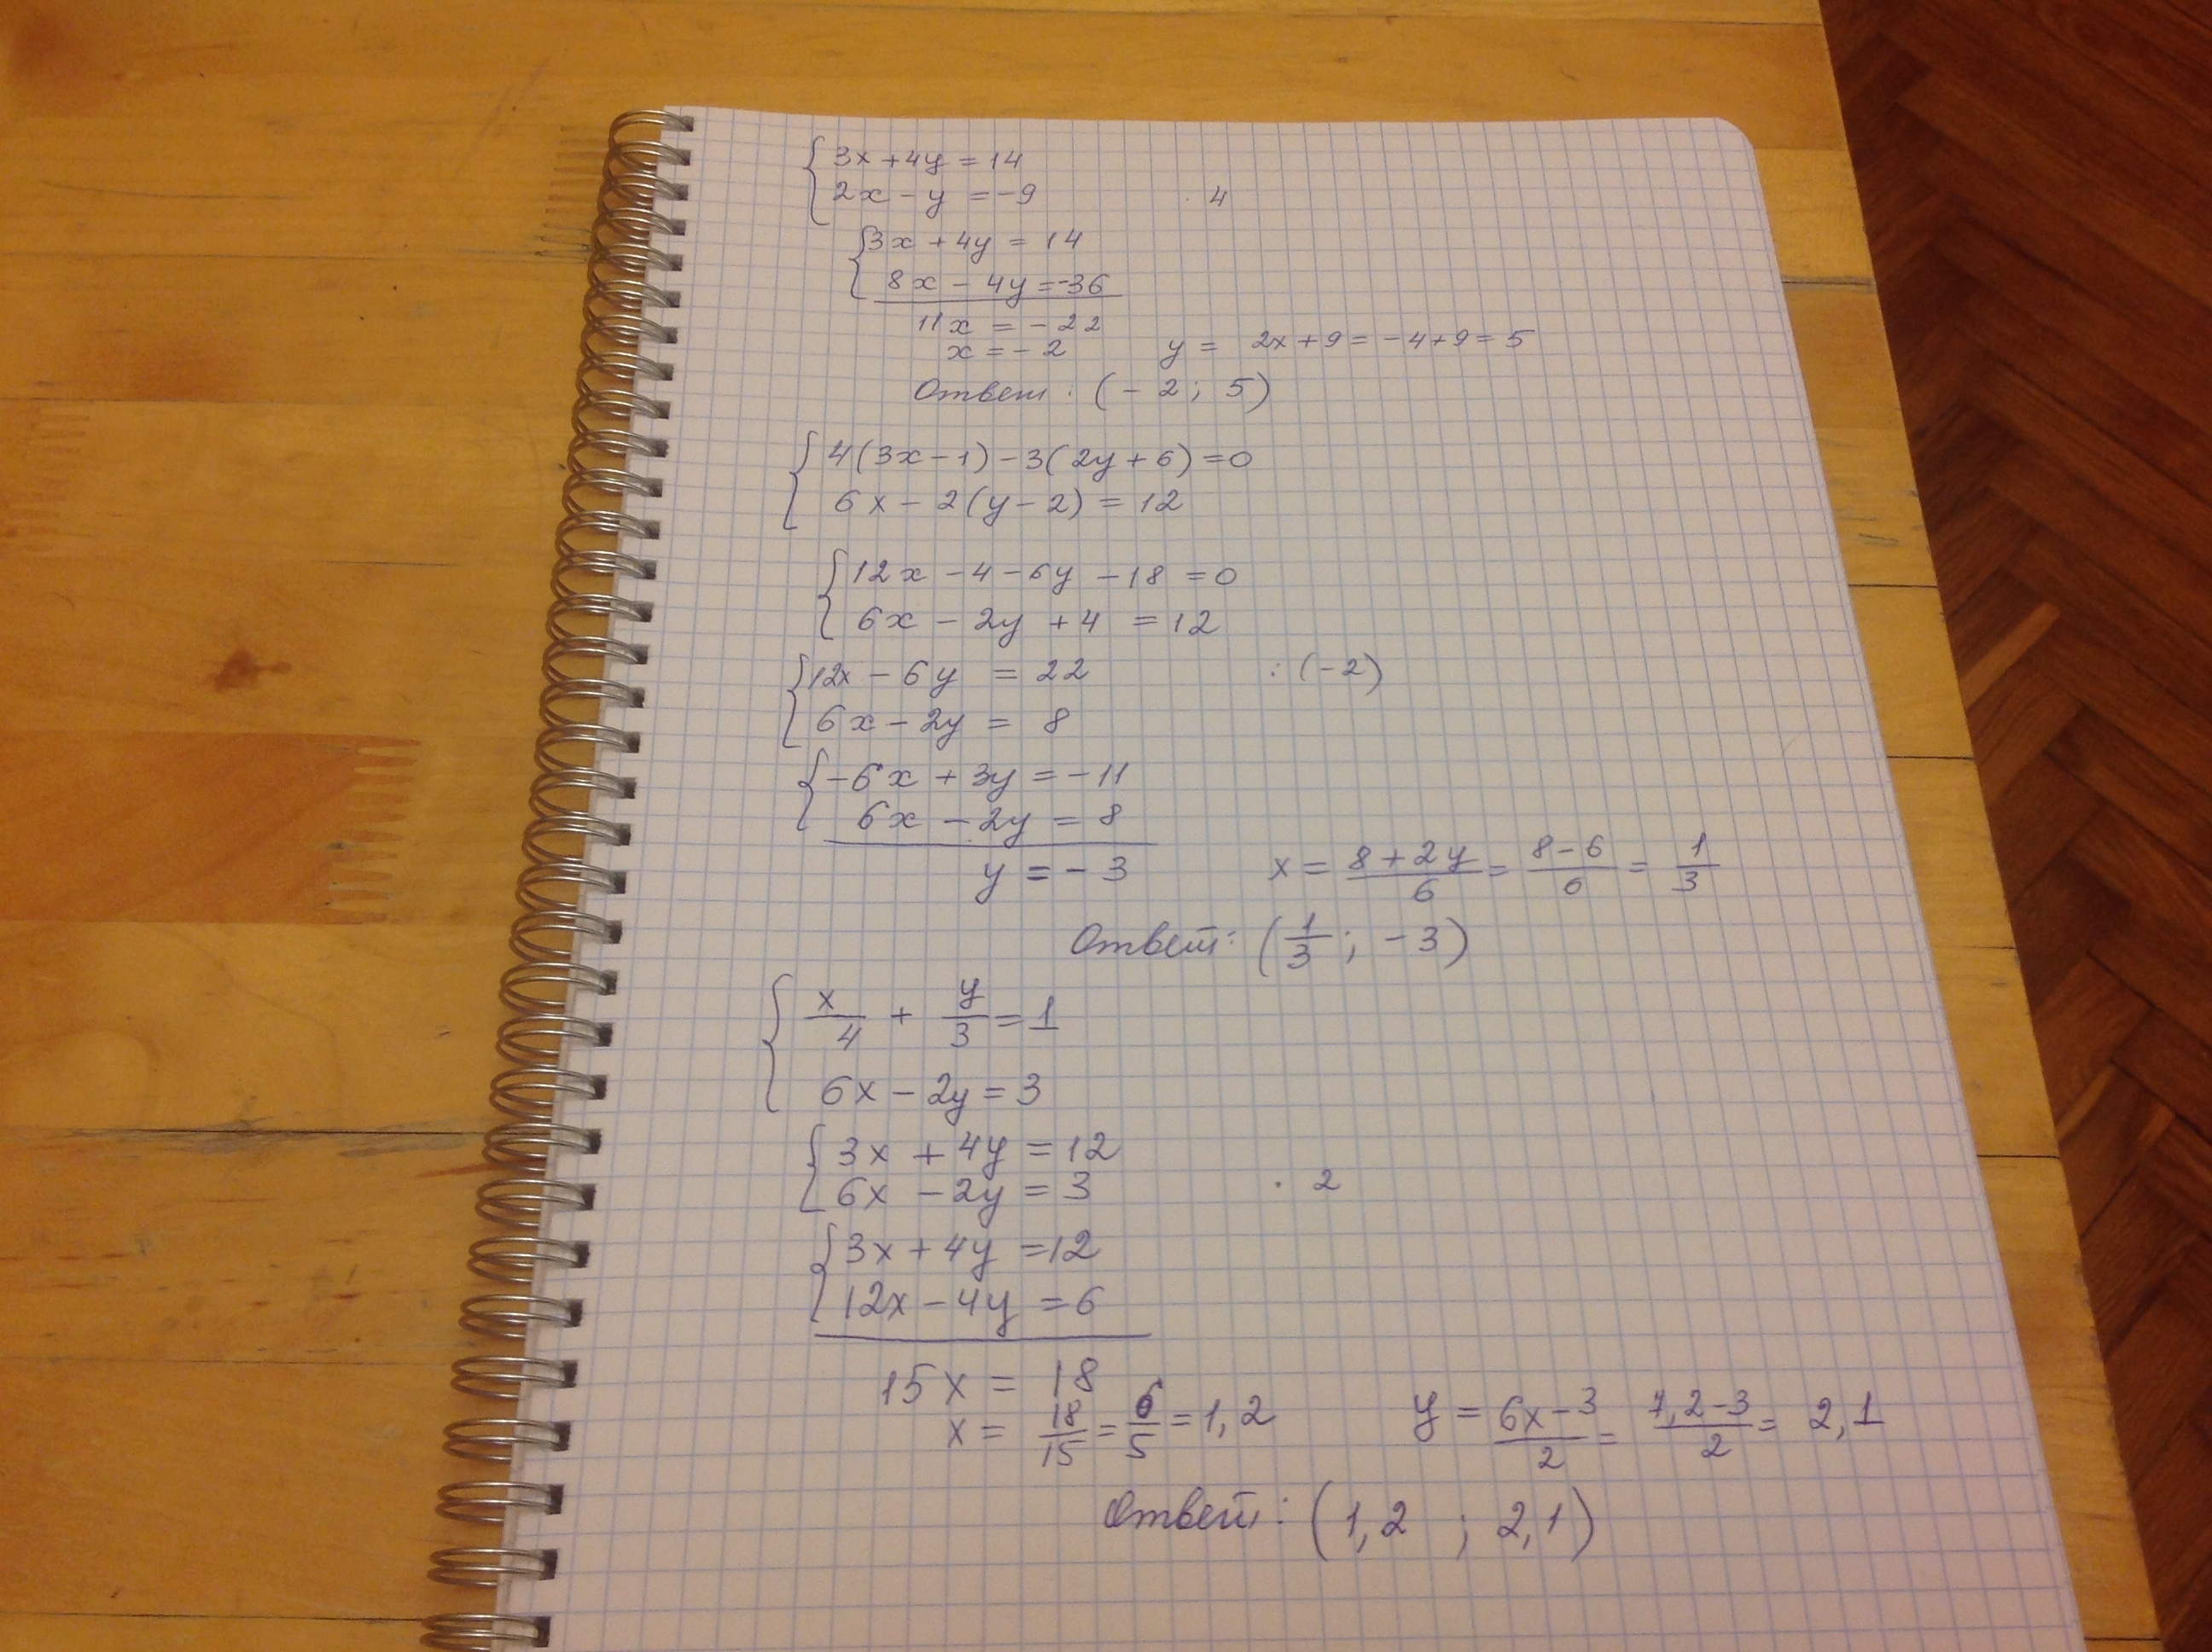 { 3x + 4y = 14
2x - y = -9 · 4
{ 3x + 4y = 14
8x - 4y = -36
11x = -22
x = -2 y = 2x + 9 = -4 + 9 = 5
Ответ: (-2; 5)
{ 4(3x - 1) - 3(2y + 6) = 0
6x - 2(y - 2) = 12
{ 12x - 4 - 6y - 18 = 0
6x - 2y + 4 = 12
{ 12x - 6y = 22 : (-2)
6x - 2y = 8
{ -6x + 3y = -11
6x - 2y = 8
y = -3 x = (8 + 2y)/6 = (8 - 6)/6 = 1/3
Ответ: (1/3; -3)
{ x/4 + y/3 = 1
6x - 2y = 3
{ 3x + 4y = 12
6x - 2y = 3 · 2
{ 3x + 4y = 12
12x - 4y = 6
15x = 18
x = 18/15 = 6/5 = 1,2 y = (6x - 3)/2 = (7,2 - 3)/2 = 2,1
Ответ: (1,2 ; 2,1)